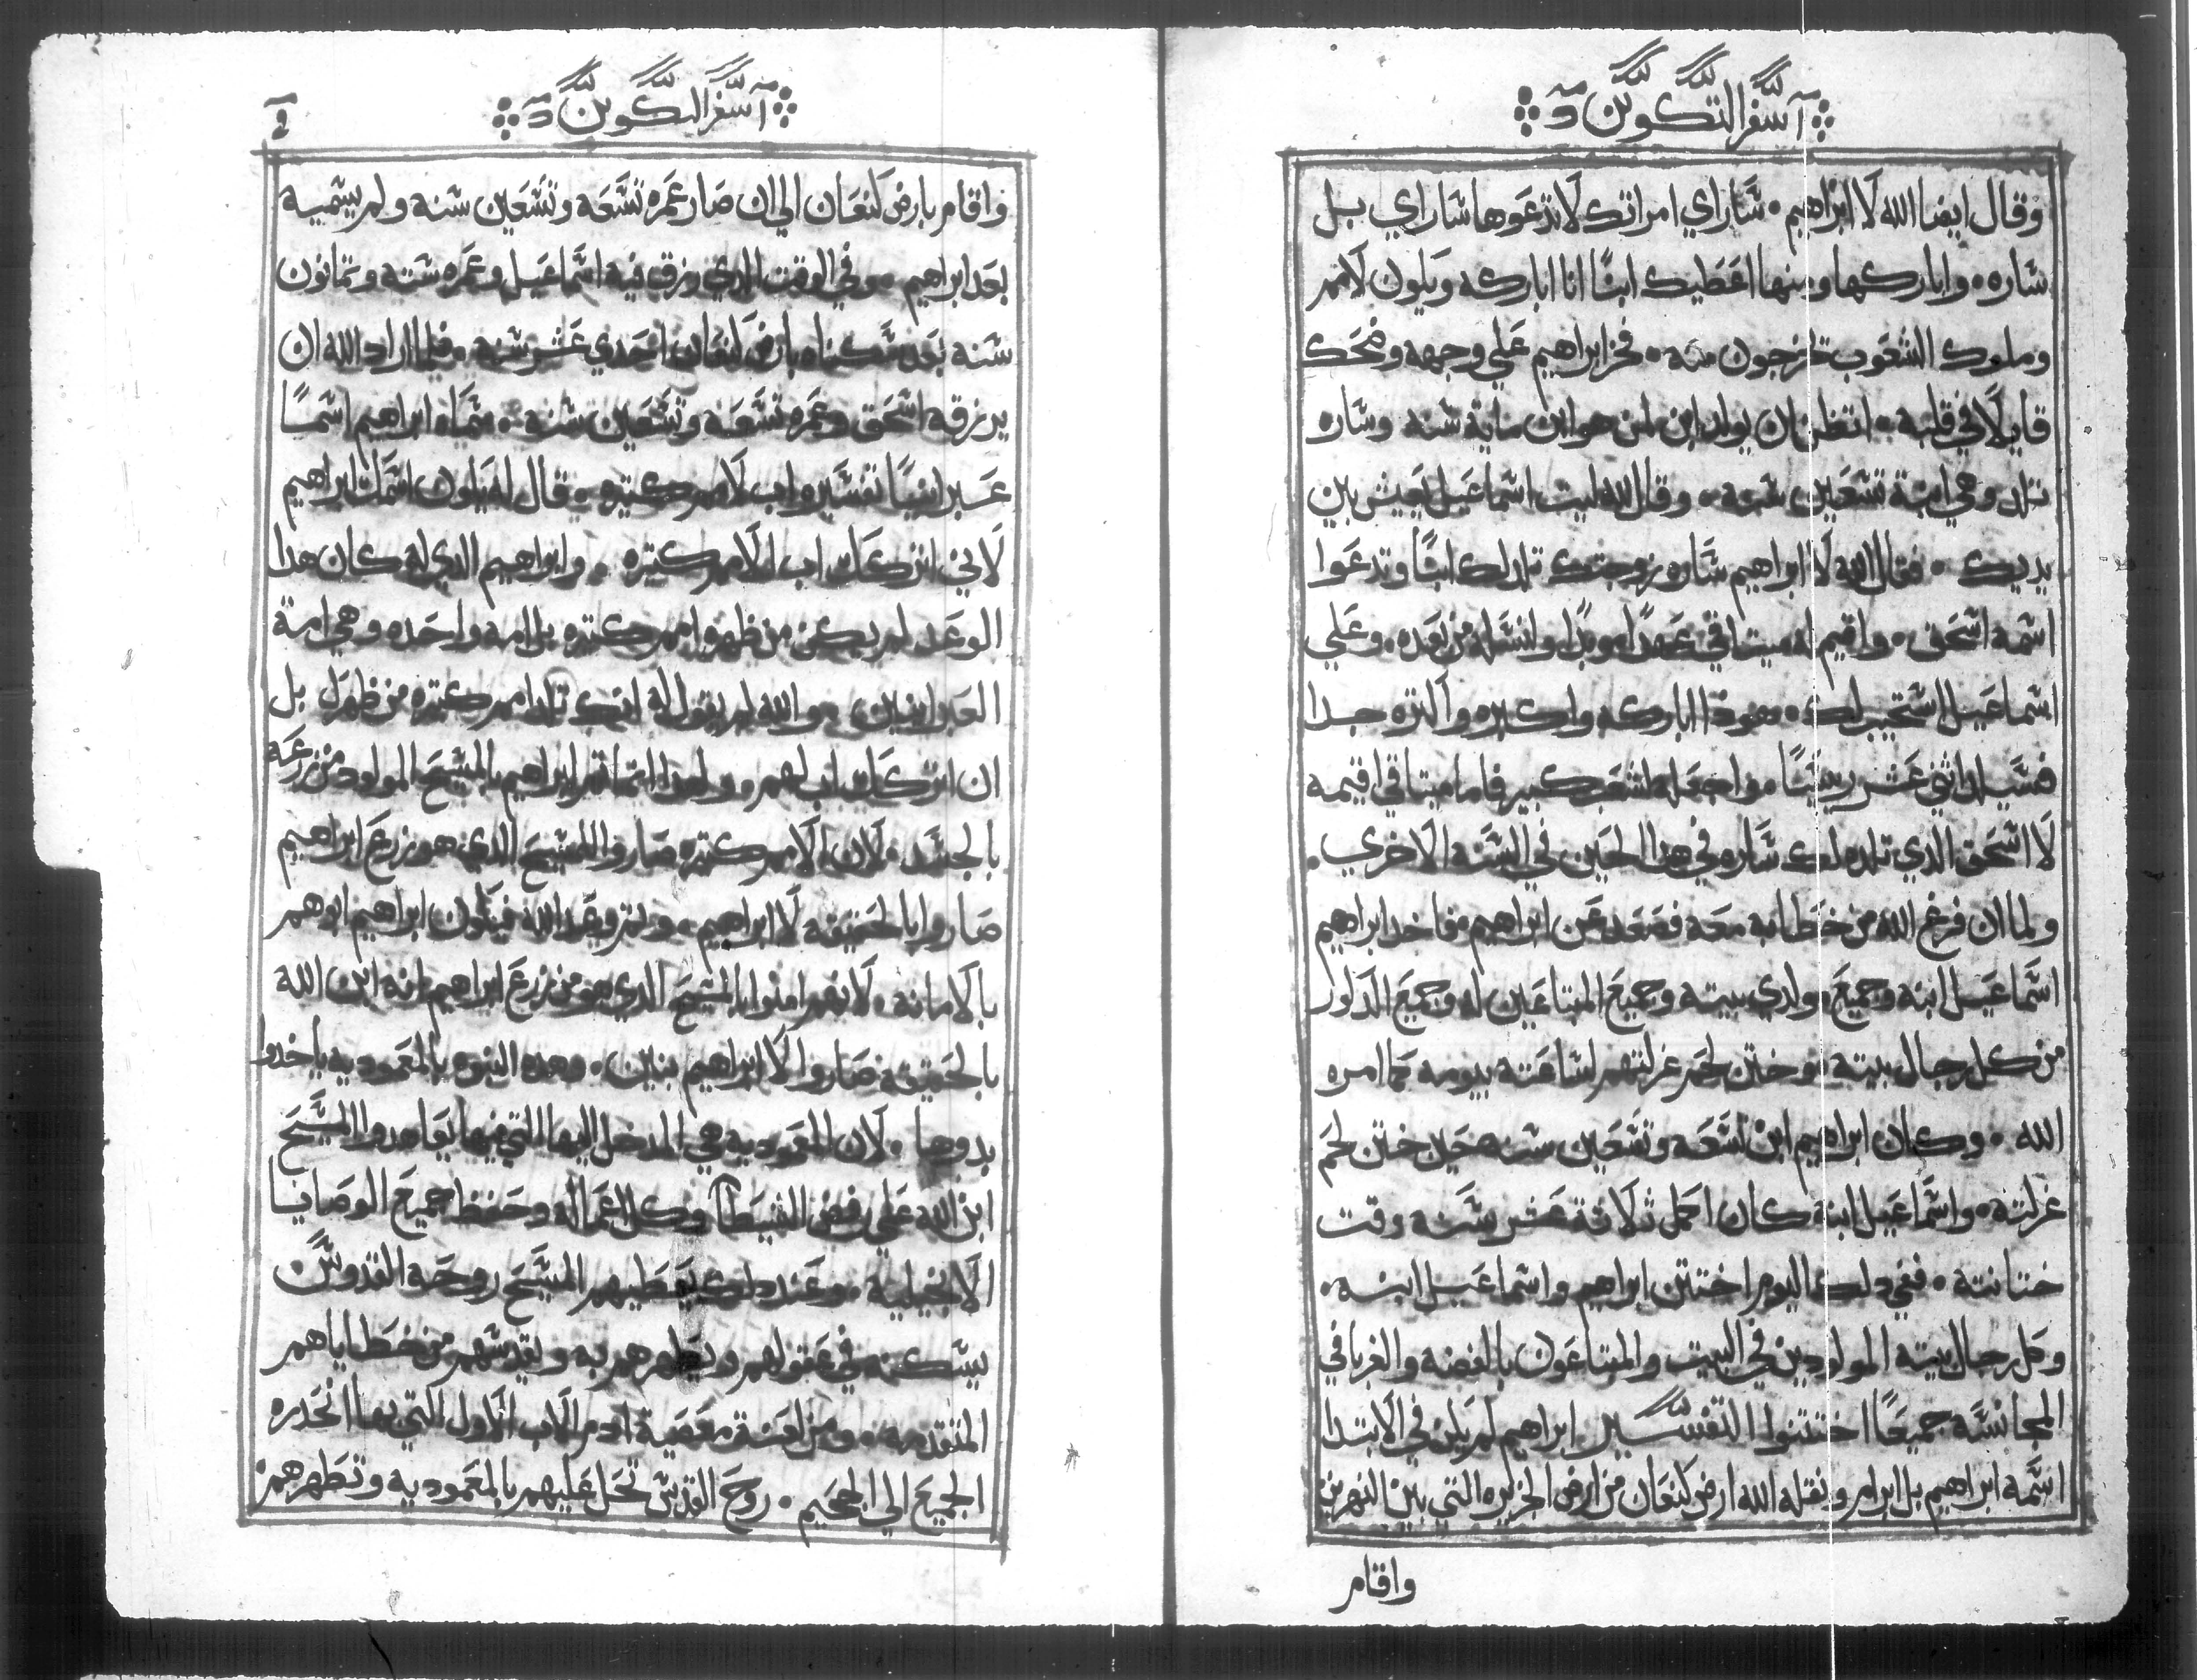 سفر التكوين
وقال ايضا الله لا ابراهيم . ساراي امراتك لا تدعوها ساراي بل
ساره . واباركها ومنها اعطيك ابنًا انا اباركه ويكون لامم
وملوك الشعوب تخرجون منه . فخر ابراهيم علي وجهه وضحك
قايلا في قلبه . اتظن ان يولد ابن لمن هو ابن ماية سنه وساره
تلد وهي ابنة تسعين سنه . وقال لله ليت اسماعيل يعيش بين
يديك . فقال الله لا ابراهيم ساره زوجتك تلد لك ابنًا وتدعوا
اسمه اسحق . واقيم له ميتاقي عهدًا موبدًا ولنسله من بعده . وعلي
اسماعيل استجيب لك . هودا اباركه واكبره واكتره جدا
فسيلد اثني عشر رييسًا . واجعله لشعب كبير فاما ميتاقي اقيمه
لا اسحق الدي تلده لك ساره في هدا الحين في السنه الاخري .
ولما ان فرغ الله من خطابه معه فصعد عن ابراهيم . فاخد ابراهيم
اسماعيل ابنه وجميع مولدي بيته وجميع المبتاعين له وجميع الدكور
من كل رجال بيته . وختن لحم غرلتهم لساعته بيومه كما امره
الله . وكان ابراهيم ابن تسعه وتسعين سنه حين ختن لحم
غرلته . واسماعيل ابنه كان احمل ثلاثة عشر سنه وقت
ختانته . ففي دلك اليوم اختتن ابراهيم واسماعيل ابنه .
وكل رجال بيته المولودين في البيت والمبتاعون بالفضه والغربا في
المجانسه جميعًا اختتنوا التفسير ابراهيم لم يكن في الابتدا
اسمه ابراهيم بل ابرام ونقله الله ارض كنعان من ارض الجزيره التي بين النهرين
واقام
سفر التكوين
واقام بارض كنعان الي ان صار عمره تسعه وتسعين سنه ولم يسميه
بعد ابراهيم . وفي الوقت الدي رزق فيه اسماعيل وعمره سته وتمانون
سنه بعد سكناه بارض كنعان احدي عشر سنه . فلما اراد الله ان
يرزقه اسحق وعمره تسعه وتسعين سنه . سماه ابراهيم اسمًا
عبرانيًا تفسيره اب لامم كتيره . قال له يكون اسمك ابراهيم
لاني اتركك اب لامم كتيره . وابراهيم الدي له كان هدا
الوعد لم يكن من ظهره امم كتيره بل امه واحده وهي امة
العبرانيين . والله لم يقول له انك تلد امم كتيره من ظهرك بل
ان اتركك اب لهم . ولهدا انما تم ابراهيم بالمسيح المولود من زرعه
بالجسد . لان الامم كتيره صاروا للمسيح الدي هو زرع ابراهيم
صاروا بالحقيقه لا ابراهيم . وتم وعد الله فيكون ابراهيم ابوهم
بالامانه . لانهم امنوا بالمسيح الدي هو من زرع ابراهيم انه ابن الله
بالحقيقه صاروا لا ابراهيم بنين . وهده البنوه بالمعموديه ياخدوا
بدوها . لان المعموديه هي المدخل اليها التي فيها يعاهدوا المسيح
ابن الله علي رفض الشيطان وكل اعماله وحفظ جميع الوصايا
الانجيليه . وعند دلك يعطيهم المسيح روحه القدوس
يسكنه في عقولهم ويطهرهم به ويقدسهم من خطاياهم
المتقدمه . ومن لعنة معصية ادم الاب الاول التي بها انحدره
الجميع الي الجحيم . روح القدس تحل عليهم بالمعموديه وتطهرهم